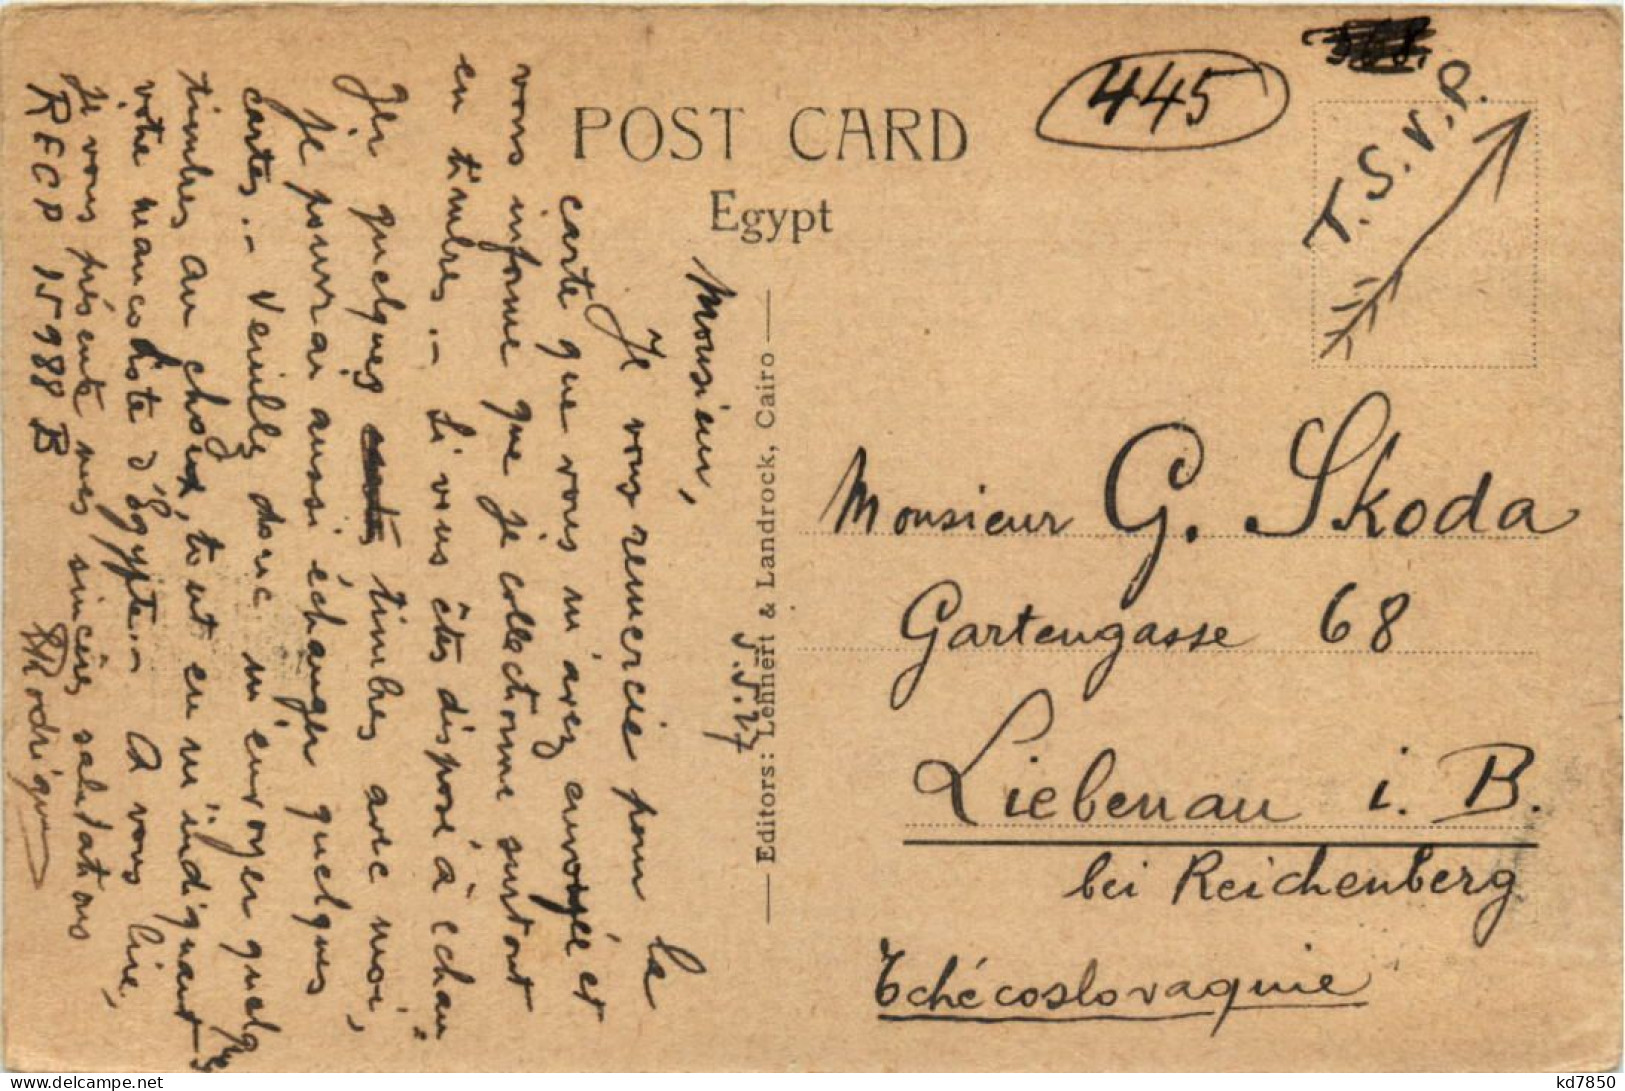 POST CARD
Egypt
445
T.S.V.P.
5.5.27
Monsieur,
Je vous remercie pour la
carte que vous m'avez envoyée et
vous informe que je collectionne surtout
en timbres.- Si vous êtes disposé à échan-
ger quelques timbres avec moi,
je pourrai aussi échanger quelques
cartes.- Veuillez donc m'envoyer quelques
timbres au choix, tout en m'indiquant
votre mancoliste d'Égypte.- A vous lire,
je vous présente mes sincères salutations
RECP 15988 B
Editors: Lehnert & Landrock, Cairo
Monsieur G. Skoda
Gartengasse 68
Liebenau i. B.
bei Reichenberg
Tchécoslovaquie
kd7850